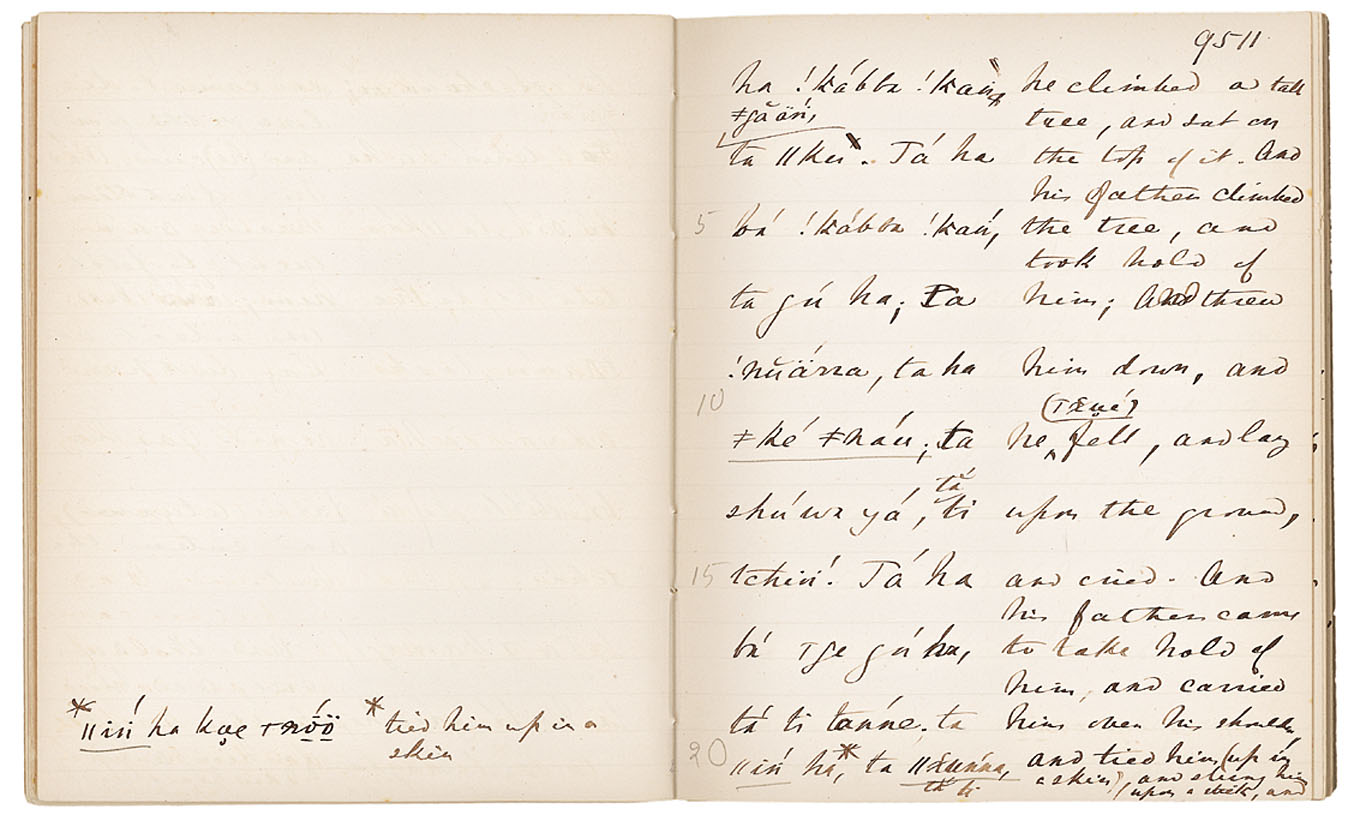 9511
ha !kábba !kań, he climbed a tall
ǂgǎäń, tree, and sat on
ta ǁke . Tá ha the top of it. And
his father climbed
5 bá !kábba !kań, the tree, and
took hold of
ta gú ha; Ta him; And threw
!nŭärra, ta ha him down, and
10
ǂké ǂnáu; ta he, fell, and lay
shúwa yá, tá ti upon the ground,
15 tchiń! Tá ha and cried. And
his father came
bá tge gú ha, to take hold of
him, and carried
tá ti tańne. ta him over his shoulder,
20 ǁiń ha*, ta and tied him (up in
a skin), and slung him
tá ti (upon a stick, and
* ǁiń ha * tied him up in a
skin